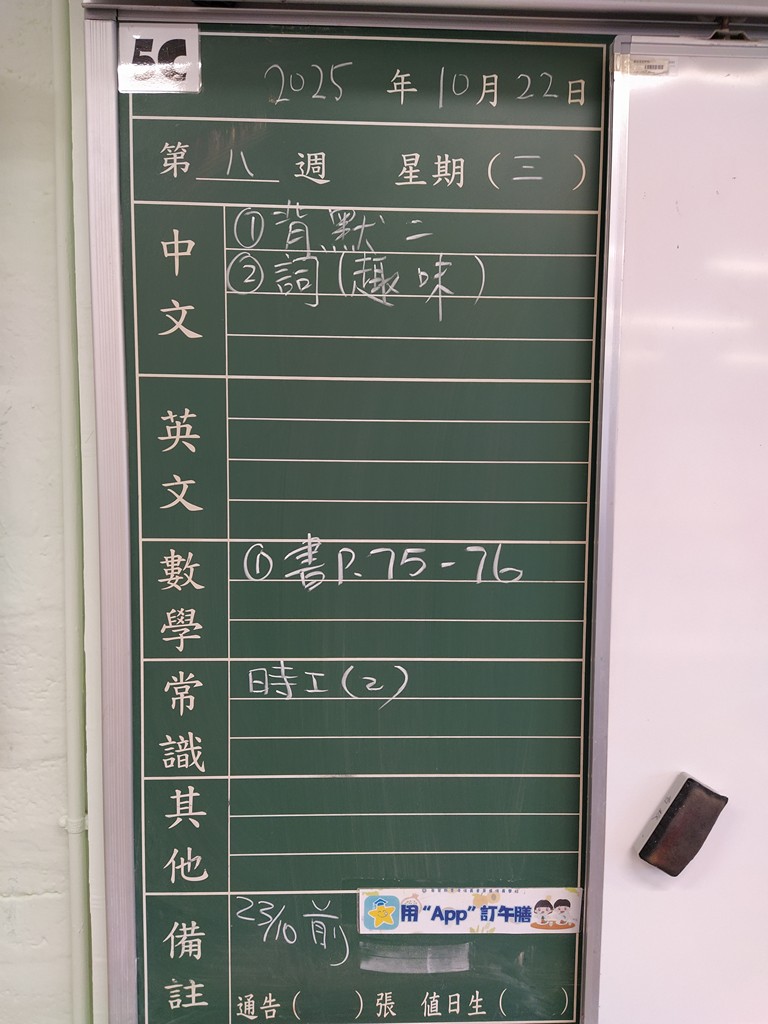 5C
2025 年 10 月 22 日
第 八 週 星期 ( 三 )
中文
① 背默二
② 詞 (趣味)
英文
數學
① 書 P.75-76
常識
時工(2)
其他
備註
23/10 前
用 “App” 訂午膳
通告 ( ) 張 值日生 ( )